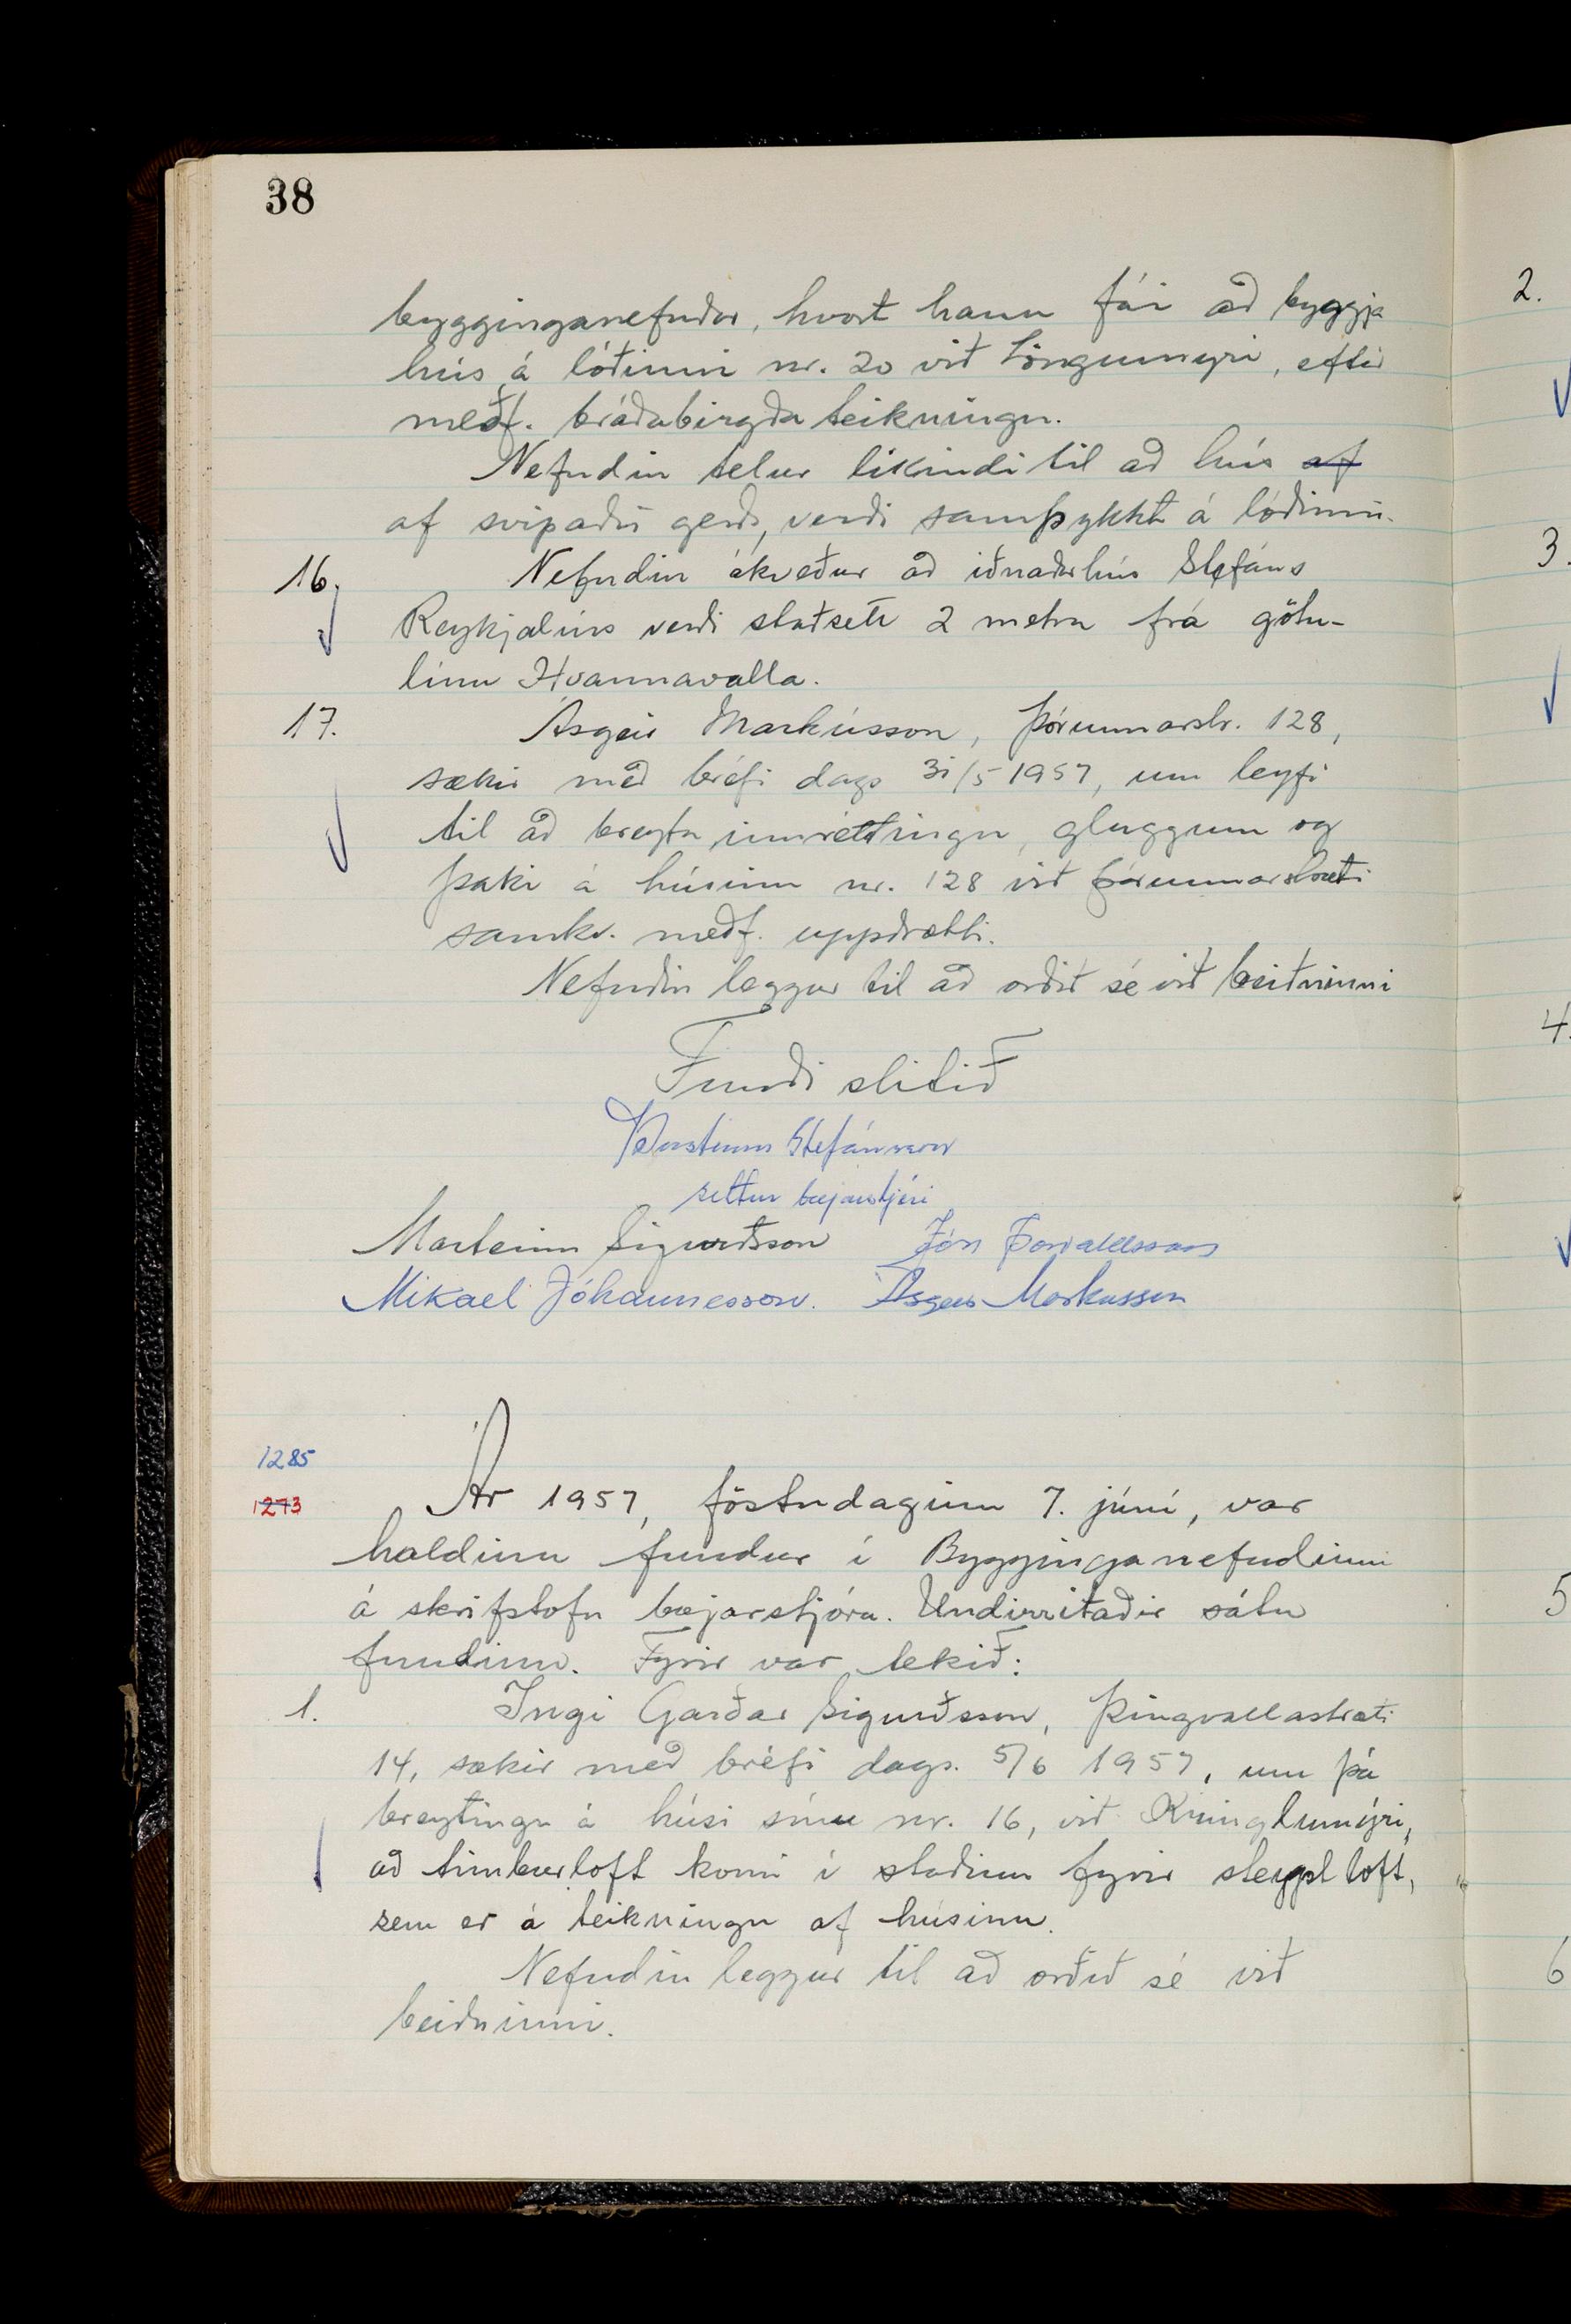 38
bygginganefndar, hvort hann fái að byggja
hús á lóðinni nr. 20 við Löngumýri, eftir
meðf. bráðabirgða teikningu.
Nefndin telur líkindi til að hús af
af svipaðri gerð, verði samþykkt á lóðinni.
16. Nefndin ákveður að iðnaðarhús Stefáns
Reykjalíns verði staðsett 2 metra frá götu-
línu Hvannavalla.
17. Ásgeir Markússon, Þórunnarstr. 128,
sækir með bréfi dags 31/5 1957, um leyfi
til að breyta innréttingu, gluggum og
þaki á húsinu nr. 128 við Þórunnarstræti
samkv. meðf. uppdrætti.
Nefndin leggur til að orðið sé við beiðninni
Fundi slitið
Þorsteinn Stefánsson
settur bæjarstjóri
Marteinn Sigurðsson Jón Þorvaldsson
Mikael Jóhannesson. Ásgeir Markússon
1285
1273
Ár 1957, föstudaginn 7. júní, var
haldinn fundur í Bygginganefndinni
á skrifstofu bæjarstjóra. Undirritaðir sátu
fundinn. Fyrir var tekið:
1. Ingi Garðar Sigurðsson, Þingvallastræti
14, sækir með bréfi dags. 5/6 1957, um þá
breytingu á húsi sínu nr. 16, við Kringlumýri,
að timburloft komi í staðinn fyrir steypt loft,
sem er á teikningu af húsinu.
Nefndin leggur til að orðið sé við
beiðninni.
2.
3.
4.
5
6